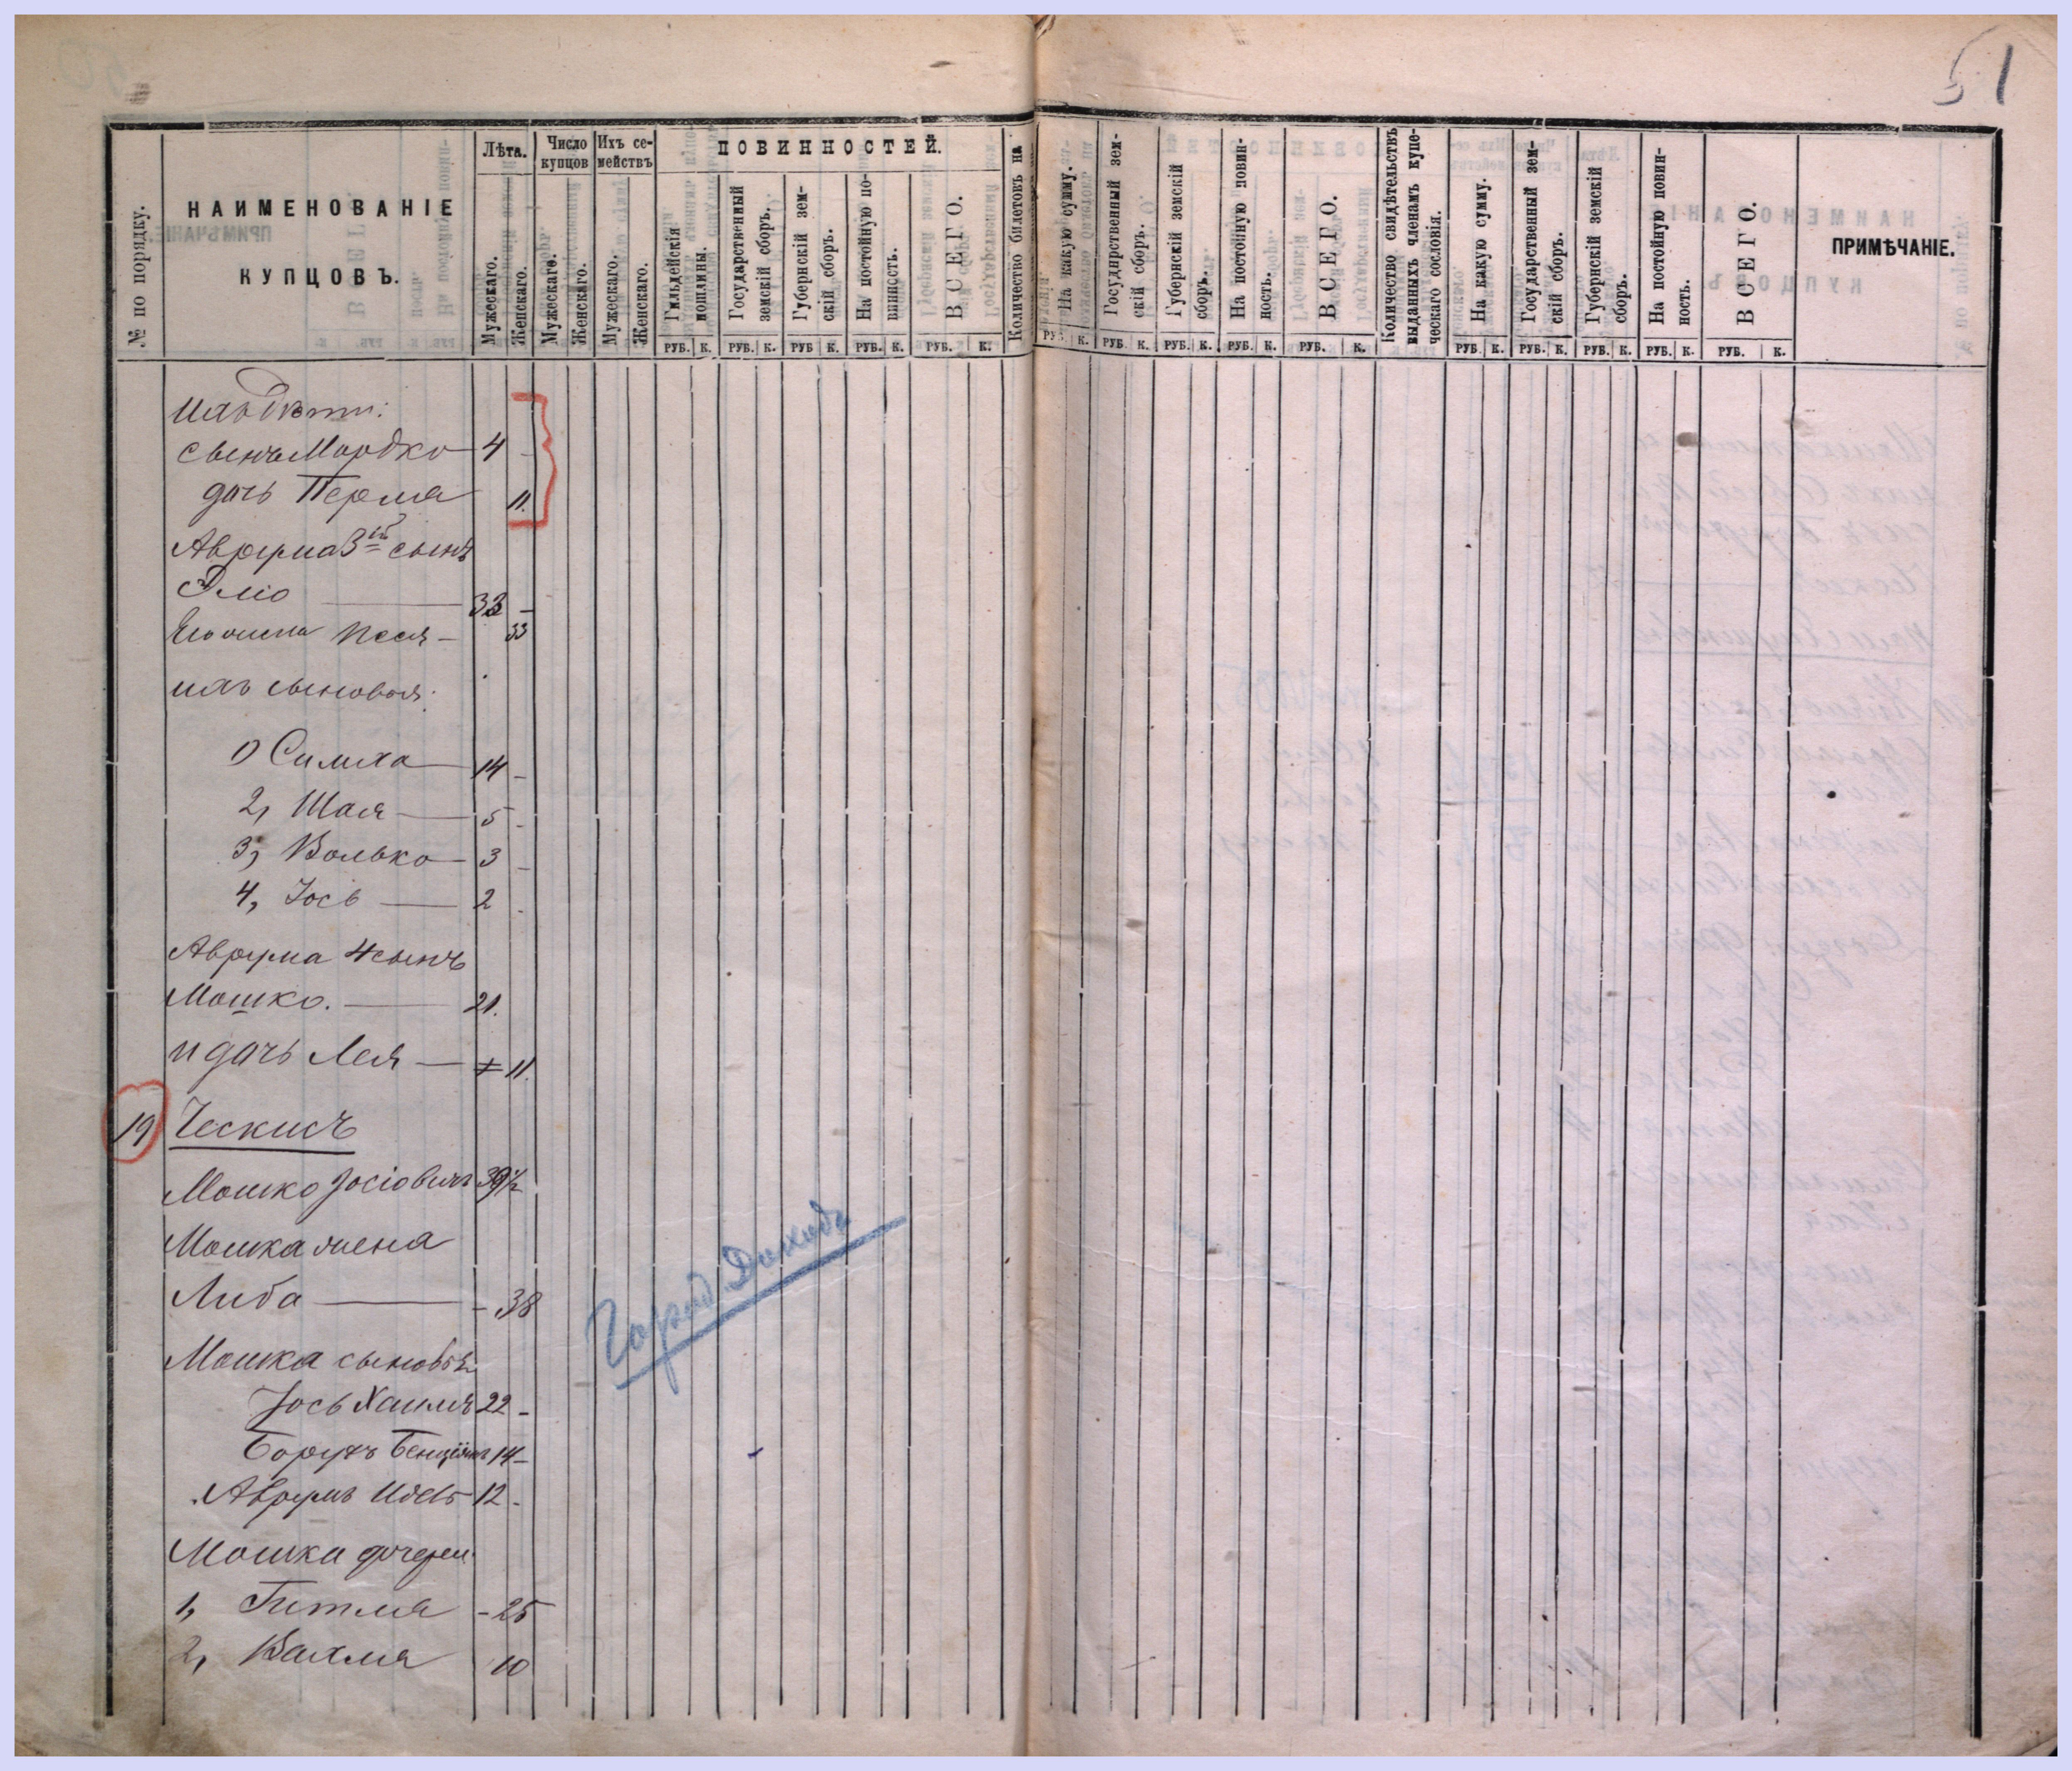 51
№ по порядку.
НАИМЕНОВАНІЕ
КУПЦОВЪ.
Лѣта.
Мужескаго.
Женскаго.
Число купцов
Мужескаго.
Женскаго.
Ихъ се-
мействъ
Мужескаго.
Женскаго.
ПОВИННОСТЕЙ.
Гильдейскія
пошлины.
Государственный
земскій сборъ.
Губернскій зем-
скій сборъ.
На постойную по-
винность.
ВСЕГО.
Количество билетовъ на
На какую сумму.
Государственный зем-
скій сборъ.
Губернскій земскій
сборъ.
На постойную повин-
ность.
ВСЕГО.
Количество свидѣтельствъ
выданныхъ членамъ купе-
ческаго сословія.
На какую сумму.
Государственный зем-
скій сборъ.
Губернскій земскій
сборъ.
На постойную повин-
ность.
ВСЕГО.
ПРИМѢЧАНІЕ.
РУБ. К. РУБ. К. РУБ К. РУБ. К. РУБ. К. РУБ. К. РУБ. К. РУБ. К. РУБ. К. РУБ. К. РУБ. К. РУБ. К. РУБ. К. РУБ. К. РУБ. К.
ихъ дѣти:
сынъ Мордко 4 -
дочь Перля 11.
Аврума 3й сынъ
Эліо 33 -
Его жена Песя - 33
ихъ сыновья:
1) Симха 14 -
2, Шая 5 -
3, Волько 3 -
4, Іось 2 -
Аврума 4 сынъ
Мошко. 21.
и дочь Лея 11.
19 Ческисъ
Мошко Іосіовичъ 39½
Мошка жена
Либа - 38
Мошка сыновья
Іось Хаимъ 22 -
Борухъ Бенціонъ 14 -
Аврумъ Идель 12 -
Мошка дочери
1, Гитля - 25
2, Вахля 10
Город Доходъ